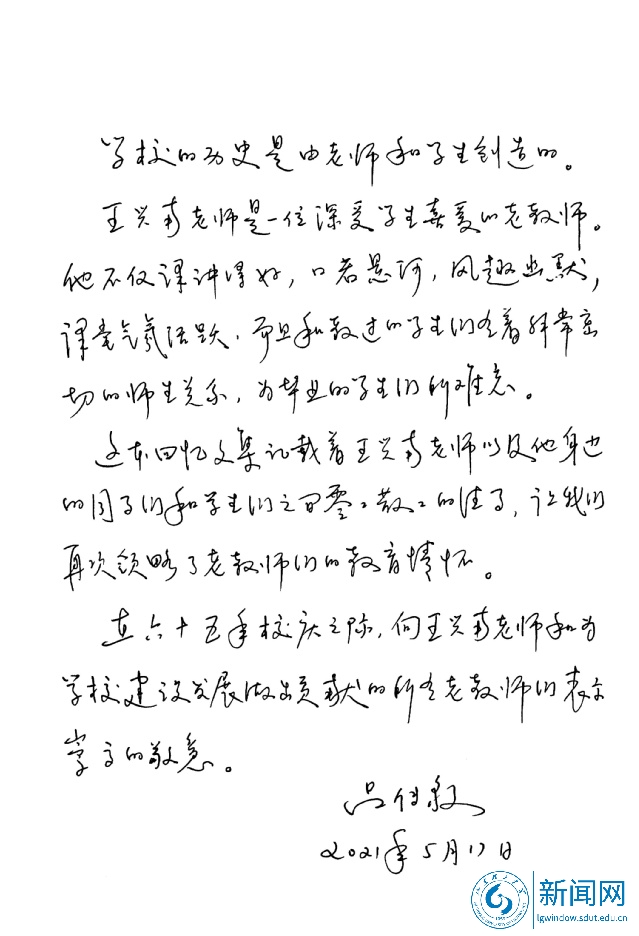 学校的历史是由老师和学生创造的。
王兴甫老师是一位深受学生喜爱的老教师。
他不仅课讲得好，口若悬河，风趣幽默，
课堂气氛活跃，而且和教过的学生们有着非常亲
切的师生关系，为毕业的学生们所难忘。
这本回忆文集记载着王兴甫老师以及他身边
的同事们和学生们之间零零散散的往事，让我们
再次领略了老教师们的教育情怀。
在六十五年校庆之际，向王兴甫老师和为
学校建设发展做出贡献的所有老教师们表示
崇高的敬意。
吕传毅
2021年5月17日
新闻网
lgwindow.sdut.edu.cn